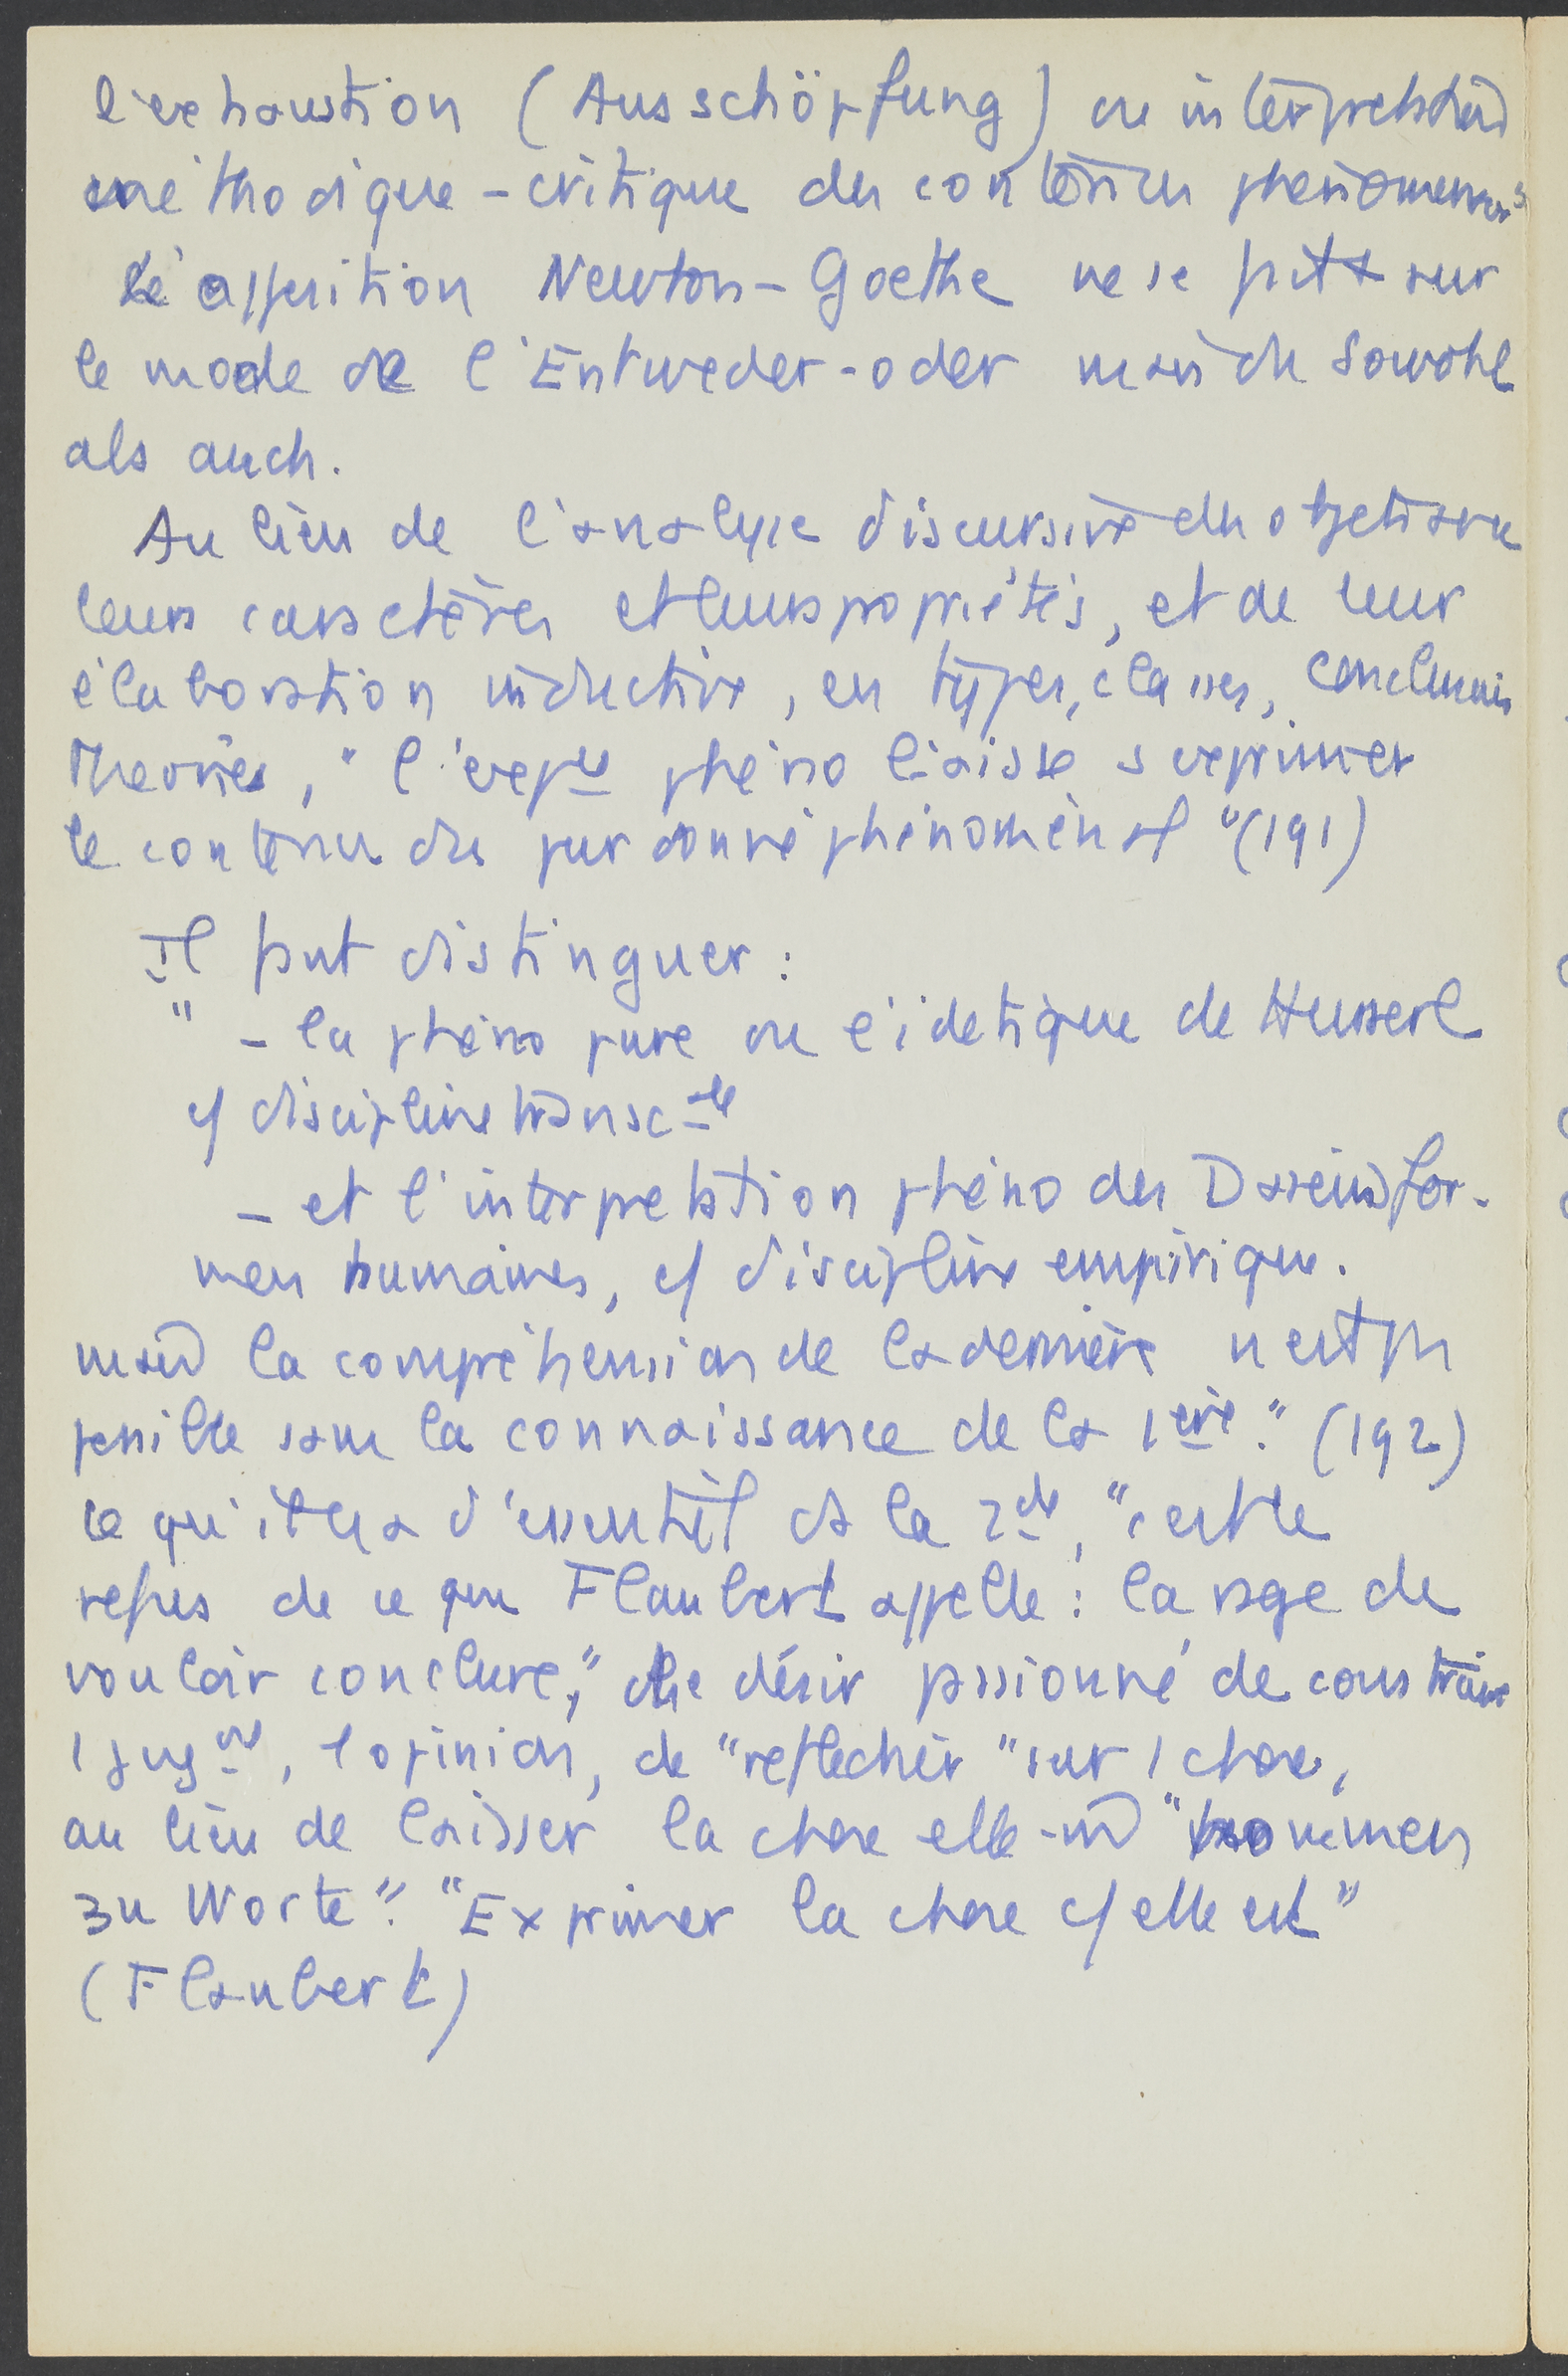 l'exhaustion (Ausschöpfung) ou interprétation
méthodique-critique des contenus phénoménaux
L'opposition Newton-Goethe ne se fait pas sur
le mode de l'Entweder-oder mais du Sowohl
als auch.
Au lieu de l'analyse discursive des objets avec
leurs caractères et leurs propriétés, et de leur
élaboration inductive, en types, classes, conclusions
théories, "l'expce phéno laisse s'exprimer
le contenu du pur donné phénoménal" (191)
Il faut distinguer :
" - la phéno pure ou eïdetique de Husserl
c/ discipline transcale
- et l'interprétation phéno des Daseinsfor-
men humaines, c/ discipline empirique.
mais la compréhension de la dernière n'est pas
possible sans la connaissance de la 1ère." (192)
Ce qu'il y a d'essentiel ds la 2de, "c'est le
refus de ce que Flaubert appelle : la rage de
vouloir conclure," le désir passionné de construire
1 jugt, 1 opinion, de "réfléchir" sur 1 chose,
au lieu de laisser la chose elle-m̂ "kommen
zu Worte". "Exprimer la chose c/ elle est"
(Flaubert)